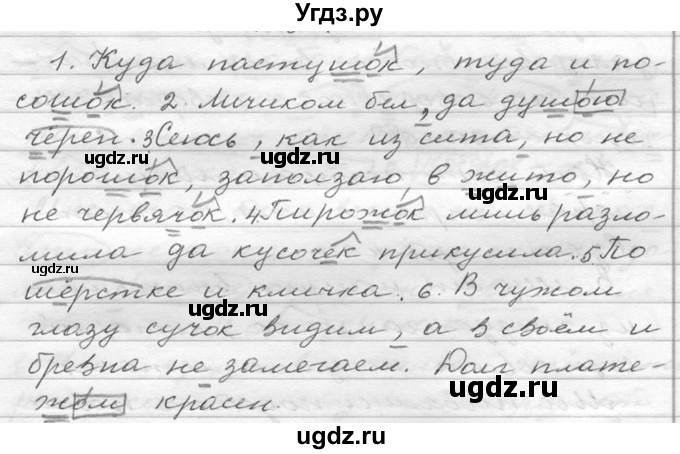 Угдз.ру
1. Куда пастушок, туда и по-
сошок. 2. Личиком бел, да душою
черен. 3Сеюсь, как из сита, но не
ugdz.ru ugdz.ru
порошок, заползаю в жито, но
не червячок. 4Пирожок лишь разло-
ugdz.ru ugdz.ru
мила да кусочек прикусила. 5.По
ugdz.ru
шёрстке и кличка. 6. В чужом
ugdz.ru ugdz.ru
глазу сучок видим, а в своём и
бревна не замечаем. Долг плате-
ugdz.ru
жом красен.
ugdz.ru